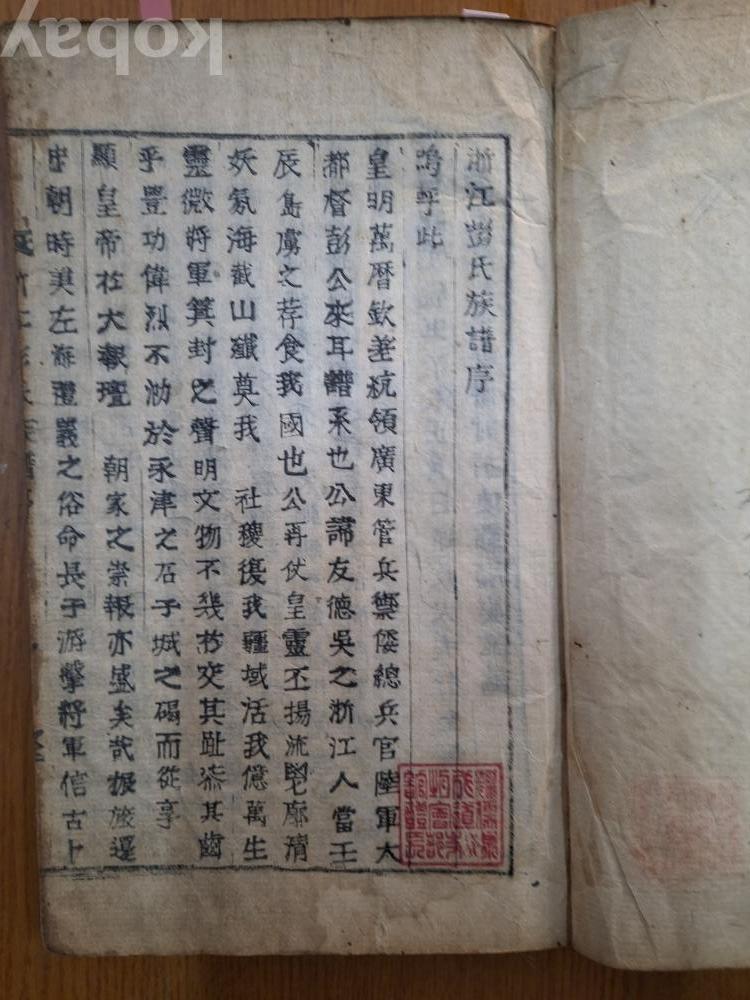 浙江彭氏族譜序
嗚乎此
皇明萬曆欽差統領廣東管兵禦倭總兵官陸軍大
都督彭公來耳譜系也公諱友德吳之浙江人當壬
辰島虜之荐食我國也公再仗皇靈丕揚流兇廓清
妖氛海截山殲奠我 社稷復我疆域活我億萬生
靈微將軍箕封之聲明文物不幾於交其趾漆其齒
乎豐功偉烈不泐於永津之石子城之碣而從享
顯皇帝於大報壇 朝家之崇報亦盛矣哉振旅還
中朝時美左海禮義之俗命長子游擊將軍信古卜
kobay